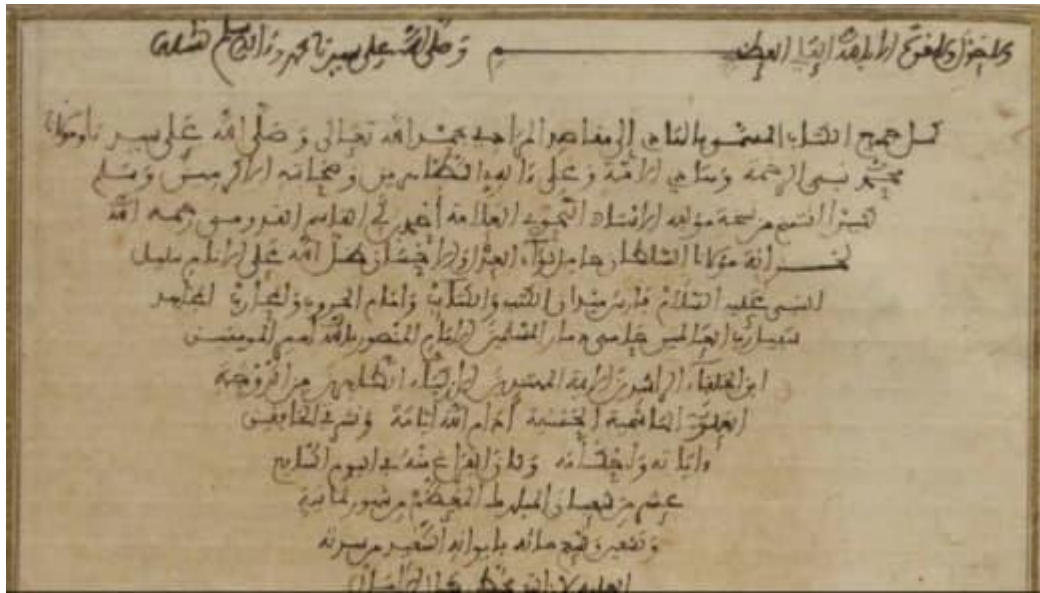 ولا حول ولا قوة إلا بالله العلي العظيم وصلى الله على سيدنا محمد وآله وسلم تسليما
كمل جميع الكتاب المسمى بالهادي إلى مقاصد المرادي بحمد الله تعالى وصلى الله على سيدنا ومولانا
محمد نبي الرحمة وهادي الأمة وعلى آله الطاهرين وصحابته الأكرمين وسلم
من نسخة مؤلفه الأستاذ النحوي العلامة أحمد بن القاسم القدومي رحمه الله
مولانا السلطان حامل لواء العدل والإحسان ظل الله على الأنام سليل
النبي عليه السلام فارس ميدان الكتب والكتاب وإمام الحروب والمحارب المجاهد
في سبيل رب العالمين حامي ذمار المسلمين الإمام المنصور بالله أمير المومنين
ابن الخلفاء الراشدين الأيمة المهتدين الطاهرين من الدوحة
العلوية الهاشمية الحسنية أدام الله أيامه ونشر في الخافقين
وإحسانه وكان الفراغ منه في اليوم السابع
عشر من شعبان المبارك المعظم من شهور ثمانية
وتسعين وتسعمائة بإيوانه السعيد من